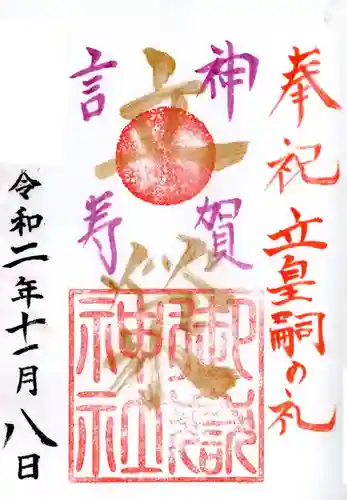 奉祝 立皇嗣の礼
神賀
言寿
御嶽
神社
令和二年十一月八日